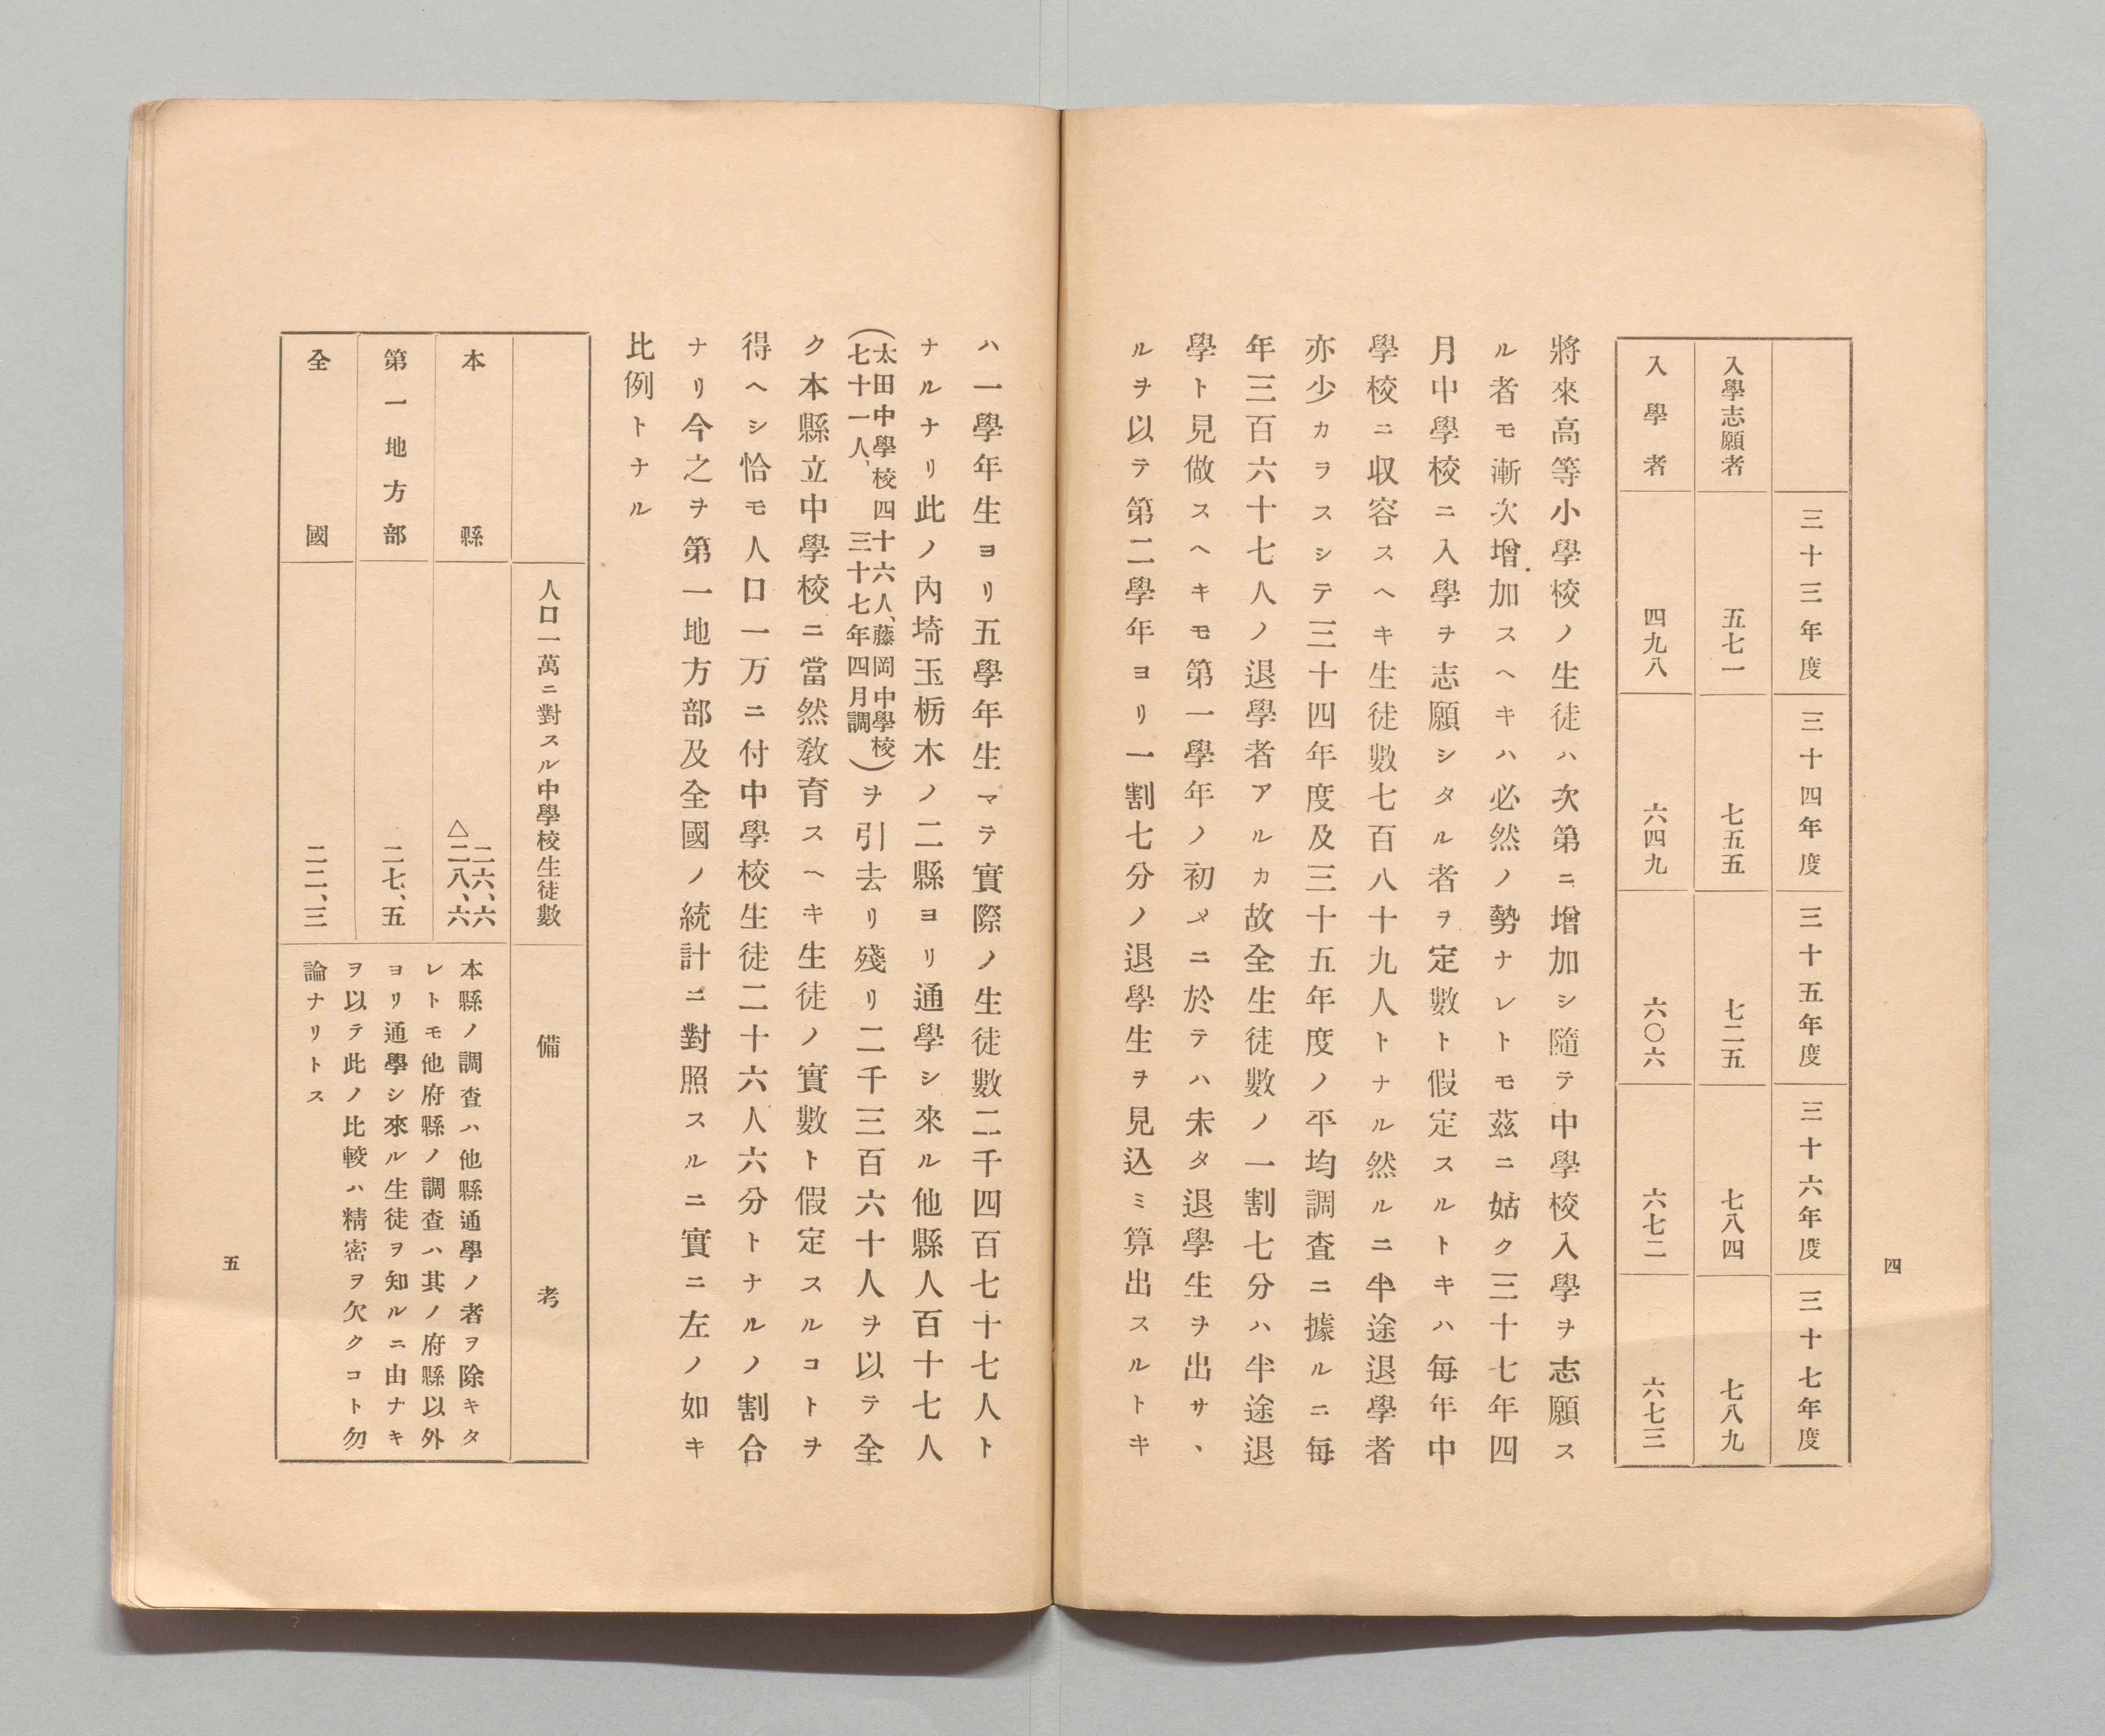 四
三十三年度 三十四年度 三十五年度 三十六年度 三十七年度
入學志願者 五七一 七五五 七二五 七八四 七八九
入學者 四九八 六四九 六〇六 六七二 六七三
將來高等小學校ノ生徒ハ次第ニ增加シ隨テ中學校入學ヲ志願ス
ル者モ漸次增加スヘキハ必然ノ勢ナレトモ茲ニ姑ク三十七年四
月中學校ニ入學ヲ志願シタル者ヲ定數ト假定スルトキハ每年中
學校ニ収容スヘキ生徒數七百八十九人トナル然ルニ半途退學者
亦少カラスシテ三十四年度及三十五年度ノ平均調査ニ據ルニ每
年三百六十七人ノ退學者アルカ故全生徒數ノ一割七分ハ半途退
學ト見做スヘキモ第一學年ノ初メニ於テハ未タ退學生ヲ出サヽ
ルヲ以テ第二學年ヨリ一割七分ノ退學生ヲ見込ミ算出スルトキ
ハ一學年生ヨリ五學年生マテ實際ノ生徒數二千四百七十七人ト
ナルナリ此ノ內埼玉栃木ノ二縣ヨリ通學シ來ル他縣人百十七人
(太田中學校四十六人、藤岡中學校
七十一人、三十七年四月調)ヲ引去リ殘リ二千三百六十人ヲ以テ全
ク本縣立中學校ニ當然敎育スヘキ生徒ノ實數ト假定スルコトヲ
得ヘシ恰モ人口一万ニ付中學校生徒二十六人六分トナルノ割合
ナリ今之ヲ第一地方部及全國ノ統計ニ對照スルニ實ニ左ノ如キ
比例トナル
人口一萬ニ對スル中學校生徒數 備考
本縣 二六、六
△二八、六
第一地方部 二七、五
全國 二二、三
本縣ノ調査ハ他縣通學ノ者ヲ除キタ
レトモ他府縣ノ調査ハ其ノ府縣以外
ヨリ通學シ來ル生徒ヲ知ルニ由ナキ
ヲ以テ此ノ比較ハ精密ヲ欠クコト勿
論ナリトス
五